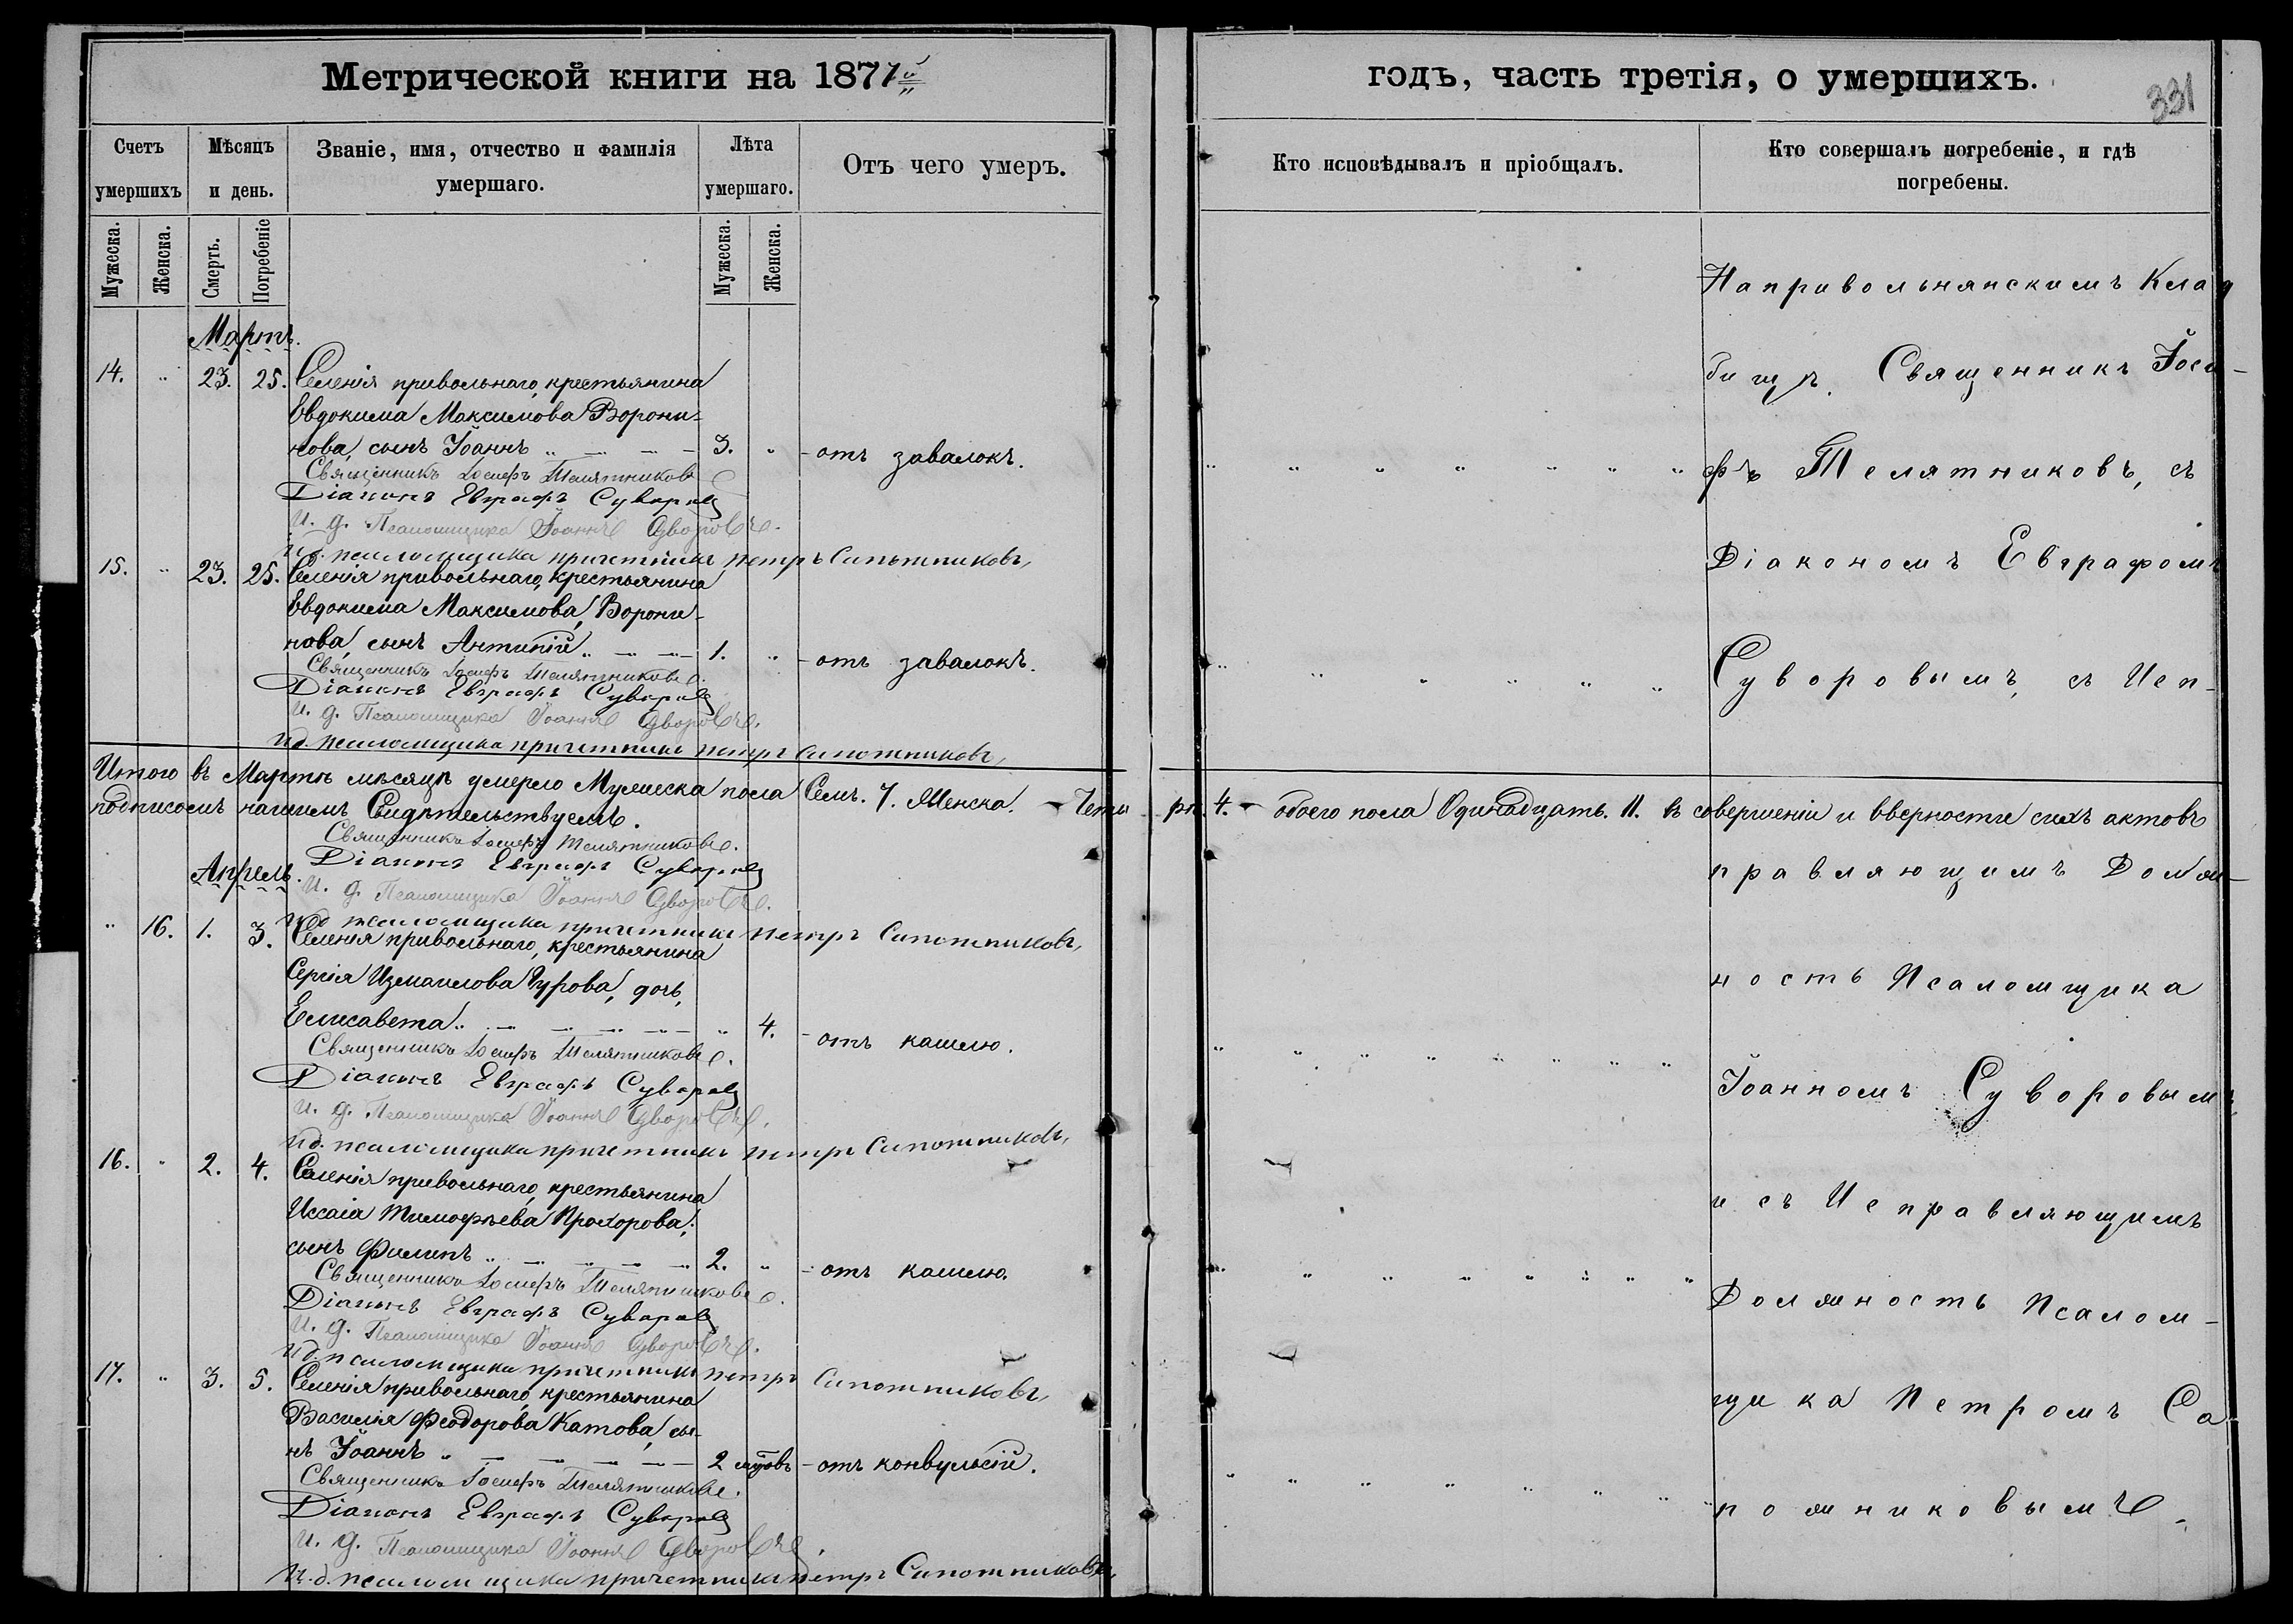 Метрической книги на 1871й
Счетъ умершихъ
Мѣсяцъ и день.
Званіе, имя, отчество и фамилія умершаго.
Лѣта умершаго.
Отъ чего умеръ.
Мужеска. Женска. Смерть. Погребеніе Мужеска. Женска.
Мартъ.
14. " 23. 25. Селенія привольнаго, крестьянина
Евдокима Максимова Ворони-
нова, сынъ Іоаннъ 3. " - отъ завалокъ.
Священникъ Іосифъ Телятниковъ
Діаконъ Евграфъ Суворовъ
И. д. Псаломщика Іоаннъ Суворовъ.
И.д. псаломщика причетникъ Петръ Сапожниковъ,
15. " 23. 25. Селенія привольнаго, крестьянина
Евдокима Максимова, Ворони-
нова, сынъ Антипій 1. " - отъ завалокъ.
Священникъ Іосифъ Телятниковъ.
Діаконъ Евграфъ Суворовъ
И. д. Псаломщика Іоаннъ Суворовъ.
И.д. псаломщика причетникъ Петръ Сапожниковъ,
Итого въ Мартѣ мѣсяцѣ умерло Мужеска пола Семь. 7. Женска. - Четы
подписомъ нашимъ Свидѣтельствуемъ.
Священникъ Іосифъ Телятниковъ.
Діаконъ Евграфъ Суворовъ
Апрель.
И. д. Псаломщика Іоаннъ Суворовъ.
И.д. псаломщика причетникъ Петръ Сапожниковъ,
" 16. 1. 3. Селенія привольнаго, крестьянина
Сергія Измаилова Гурова, дочь,
Елисавета " 4. - отъ кашлю.
Священникъ Іосифъ Телятниковъ.
Діаконъ Евграфъ Суворовъ
И. д. Псаломщика Іоаннъ Суворовъ.
И.д. псаломщика причетникъ Петръ Сапожниковъ,
16. " 2. 4. Селенія привольнаго, крестьянина
Иссаіа Тимофѣева Прохорова,
сынъ Филипъ 2. " - отъ кашлю.
Священникъ Іосифъ Телятниковъ.
Діаконъ Евграфъ Суворовъ
И. д. Псаломщика Іоаннъ Суворовъ.
И.д. псаломщика причетникъ Петръ Сапожниковъ,
17. " 3. 5. Селенія привольнаго, крестьянина
Василія Феодорова Катова, сы-
нъ Іоаннъ 2 - отъ конвульсій.
Священникъ Іосифъ Телятниковъ.
Діаконъ Евграфъ Суворовъ
И. д. Псаломщика Іоаннъ Суворовъ.
И.д. псаломщика причетникъ Петръ Сапожниковъ,
годъ, часть третія, о умершихъ.
331
Кто исповѣдывалъ и пріобщалъ.
Кто совершалъ погребеніе, и гдѣ погребены.
На привольнянскимъ Клад
бищѣ. Священникъ Іоси-
фъ Телятниковъ, съ
Діакономъ Евграфомъ
Суворовымъ, съ Исп-
ри. 4. - обоего пола Одинадцать. 11. въ совершеніи и вверности сихъ актовъ
правляющимъ Долж-
ность Псаломщика
Іоанномъ Суворовымъ
и съ Исправляющимъ
Должность Псалом-
щика Петромъ Са
пожниковымъ.